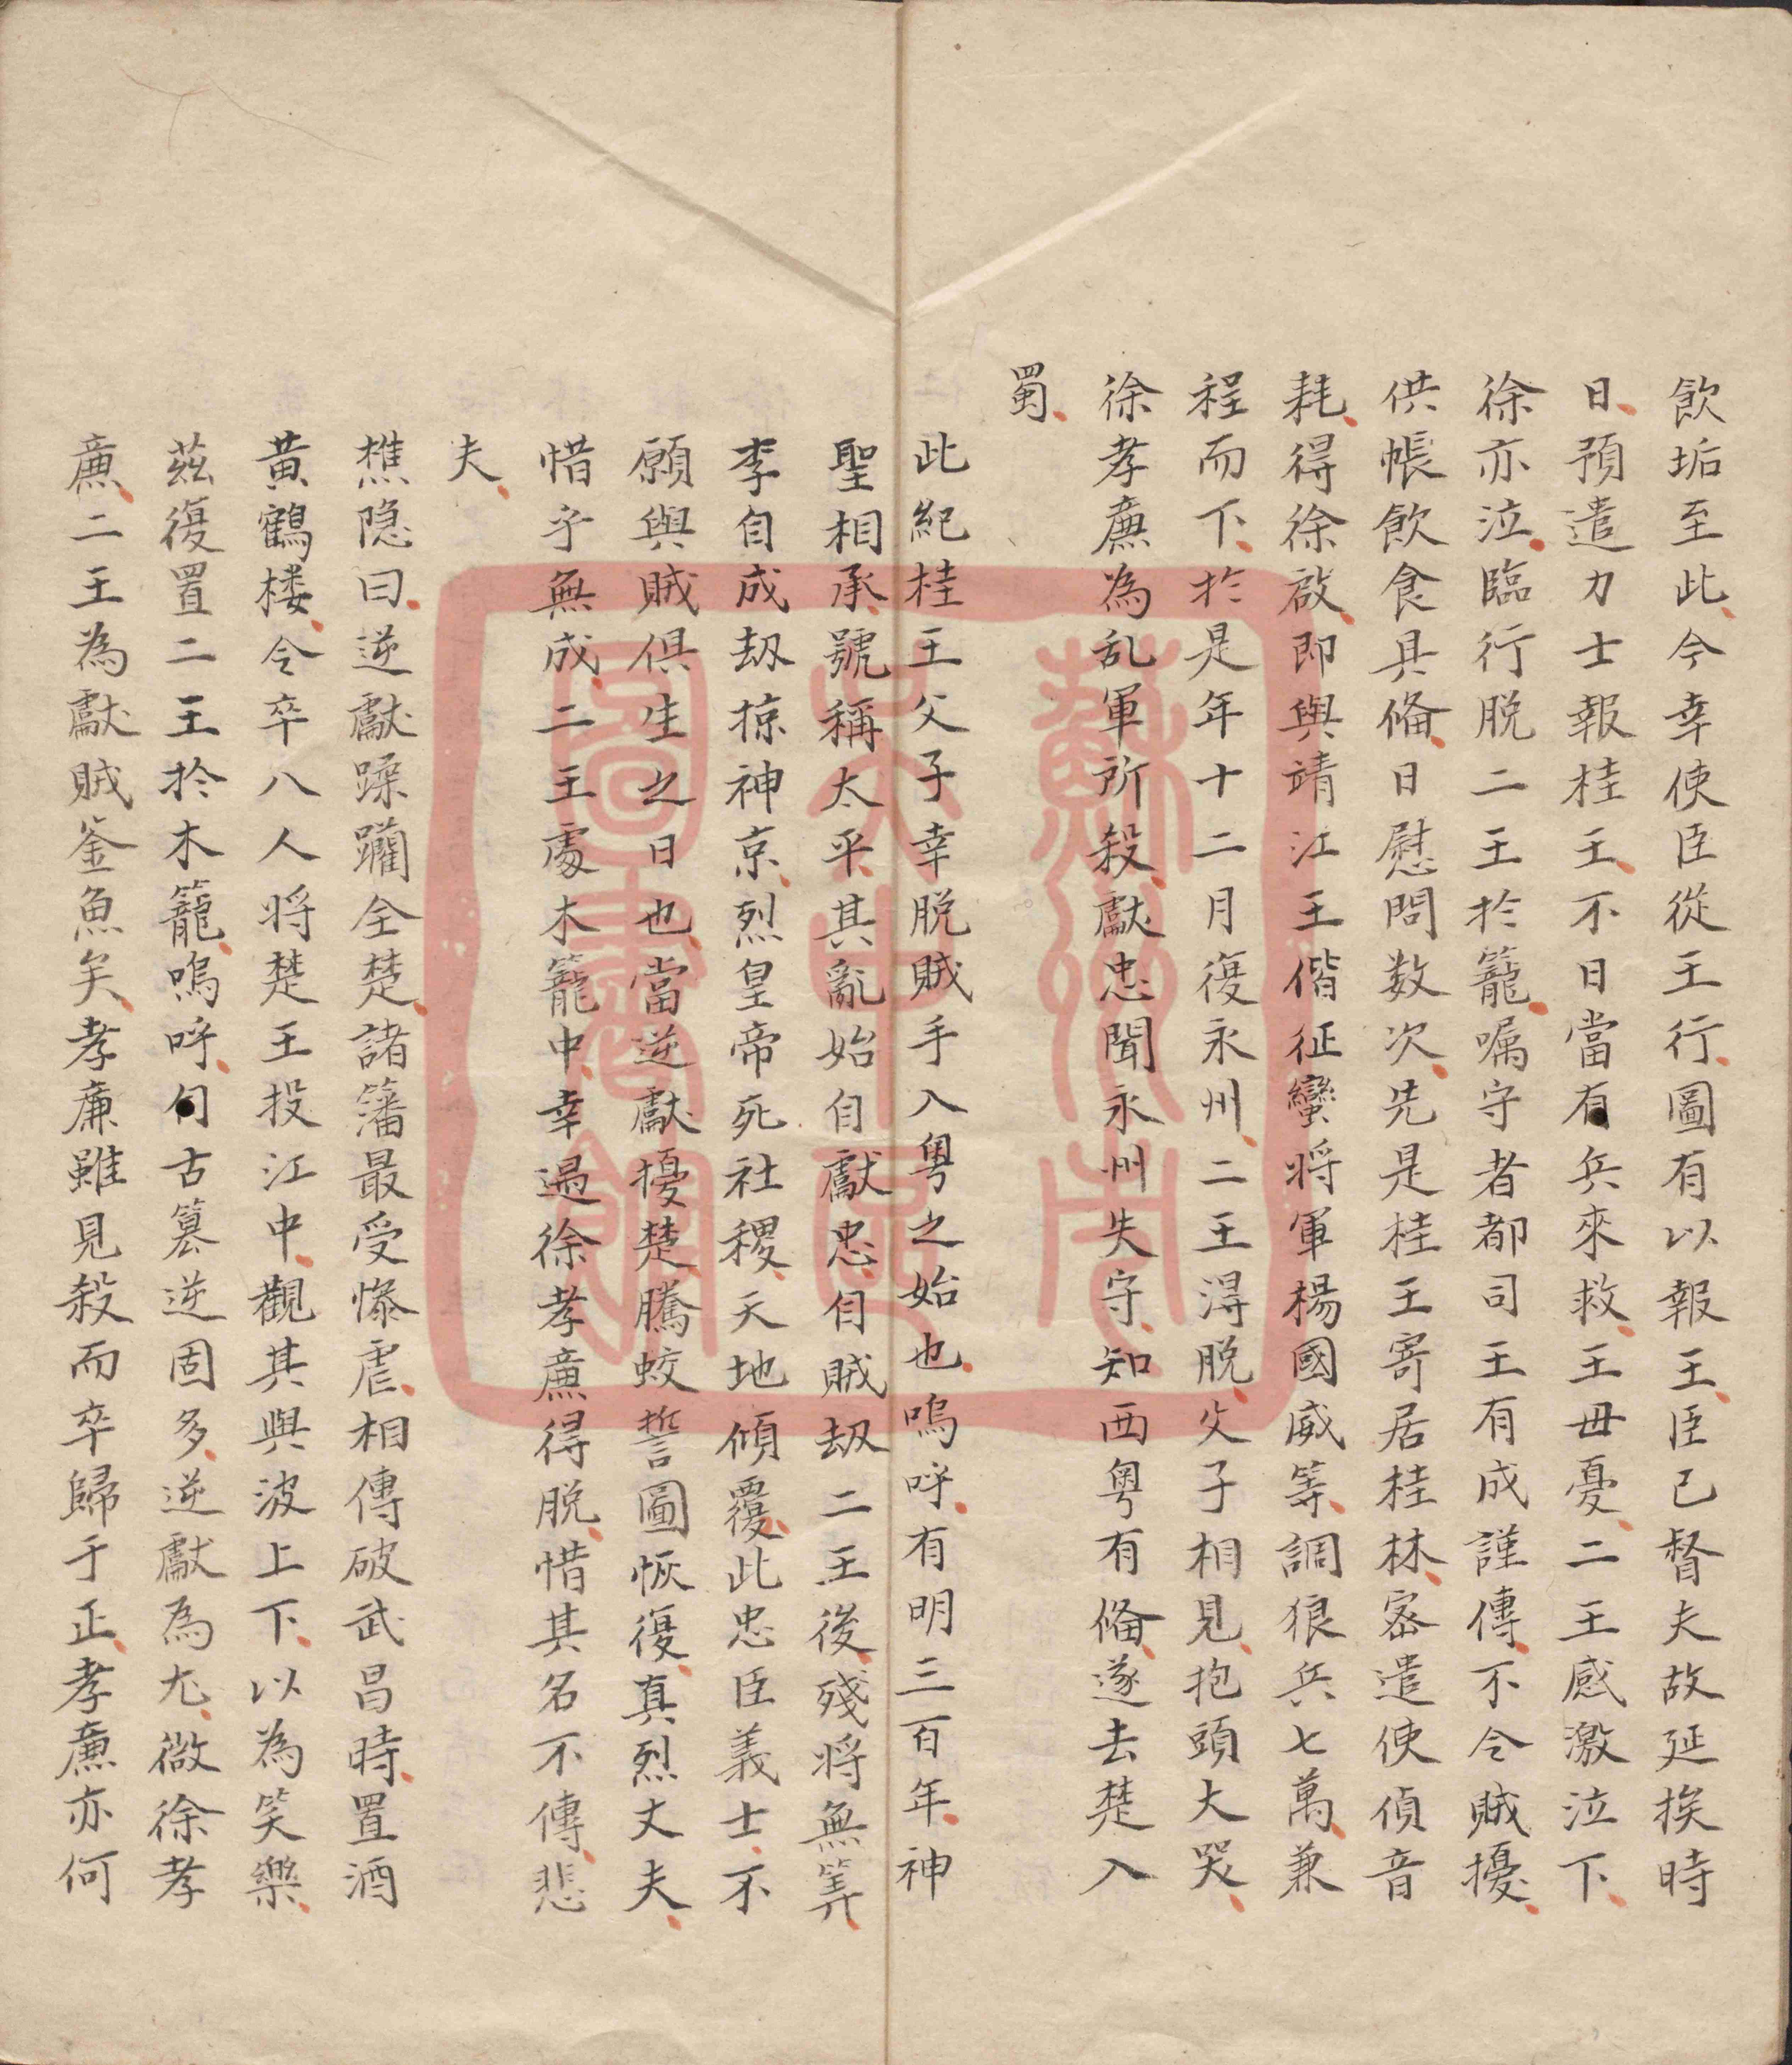 飲垢至此、今幸使臣從王行、圖有以報王、臣已督夫故延挨時
日、預遣力士報桂王、不日當有兵來救、王毋憂、二王感激泣下、
徐亦泣、臨行脱二王於籠、嘱守者都司王有成謹傳、不令賊擾、
供帳飲食具俻、日慰問数次、先是桂王寄居桂林、密遣使偵音
耗、得徐啟、即與靖江王偕征蠻将軍楊國威等、調狼兵七萬、兼
程而下、於是年十二月復永州、二王淂脱、父子相見、抱頭大哭、
徐孝廉為乱軍所殺、獻忠聞永州失守、知西粤有俻、遂去楚入
蜀、
此紀桂王父子幸脱賊手入粤之始也、嗚呼、有明三百年、神
聖相承、號稱太平、其亂始自獻忠、自賊刼二王後、殘将無筭、
李自成刼掠神京、烈皇帝死社稷、天地傾覆、此忠臣義士、不
願與賊俱生之日也、當逆獻擾楚、騰蛟誓圖恢復、真烈丈夫、
惜乎無成、二王處木籠中、幸遇徐孝廉得脱、惜其名不傳、悲
夫、
樵隐曰、逆獻蹂躪全楚、諸籓最受慘虐、相傳破武昌時、置酒
黄鶴楼、令卒八人将楚王投江中、觀其與波上下、以為笑樂、
茲復置二王於木籠、嗚呼、自古簒逆固多、逆獻為尢、微徐孝
廉、二王為獻賊釜魚矣、孝廉雖見殺而卒歸于正、孝廉亦何
蘇州市文史民圖書館